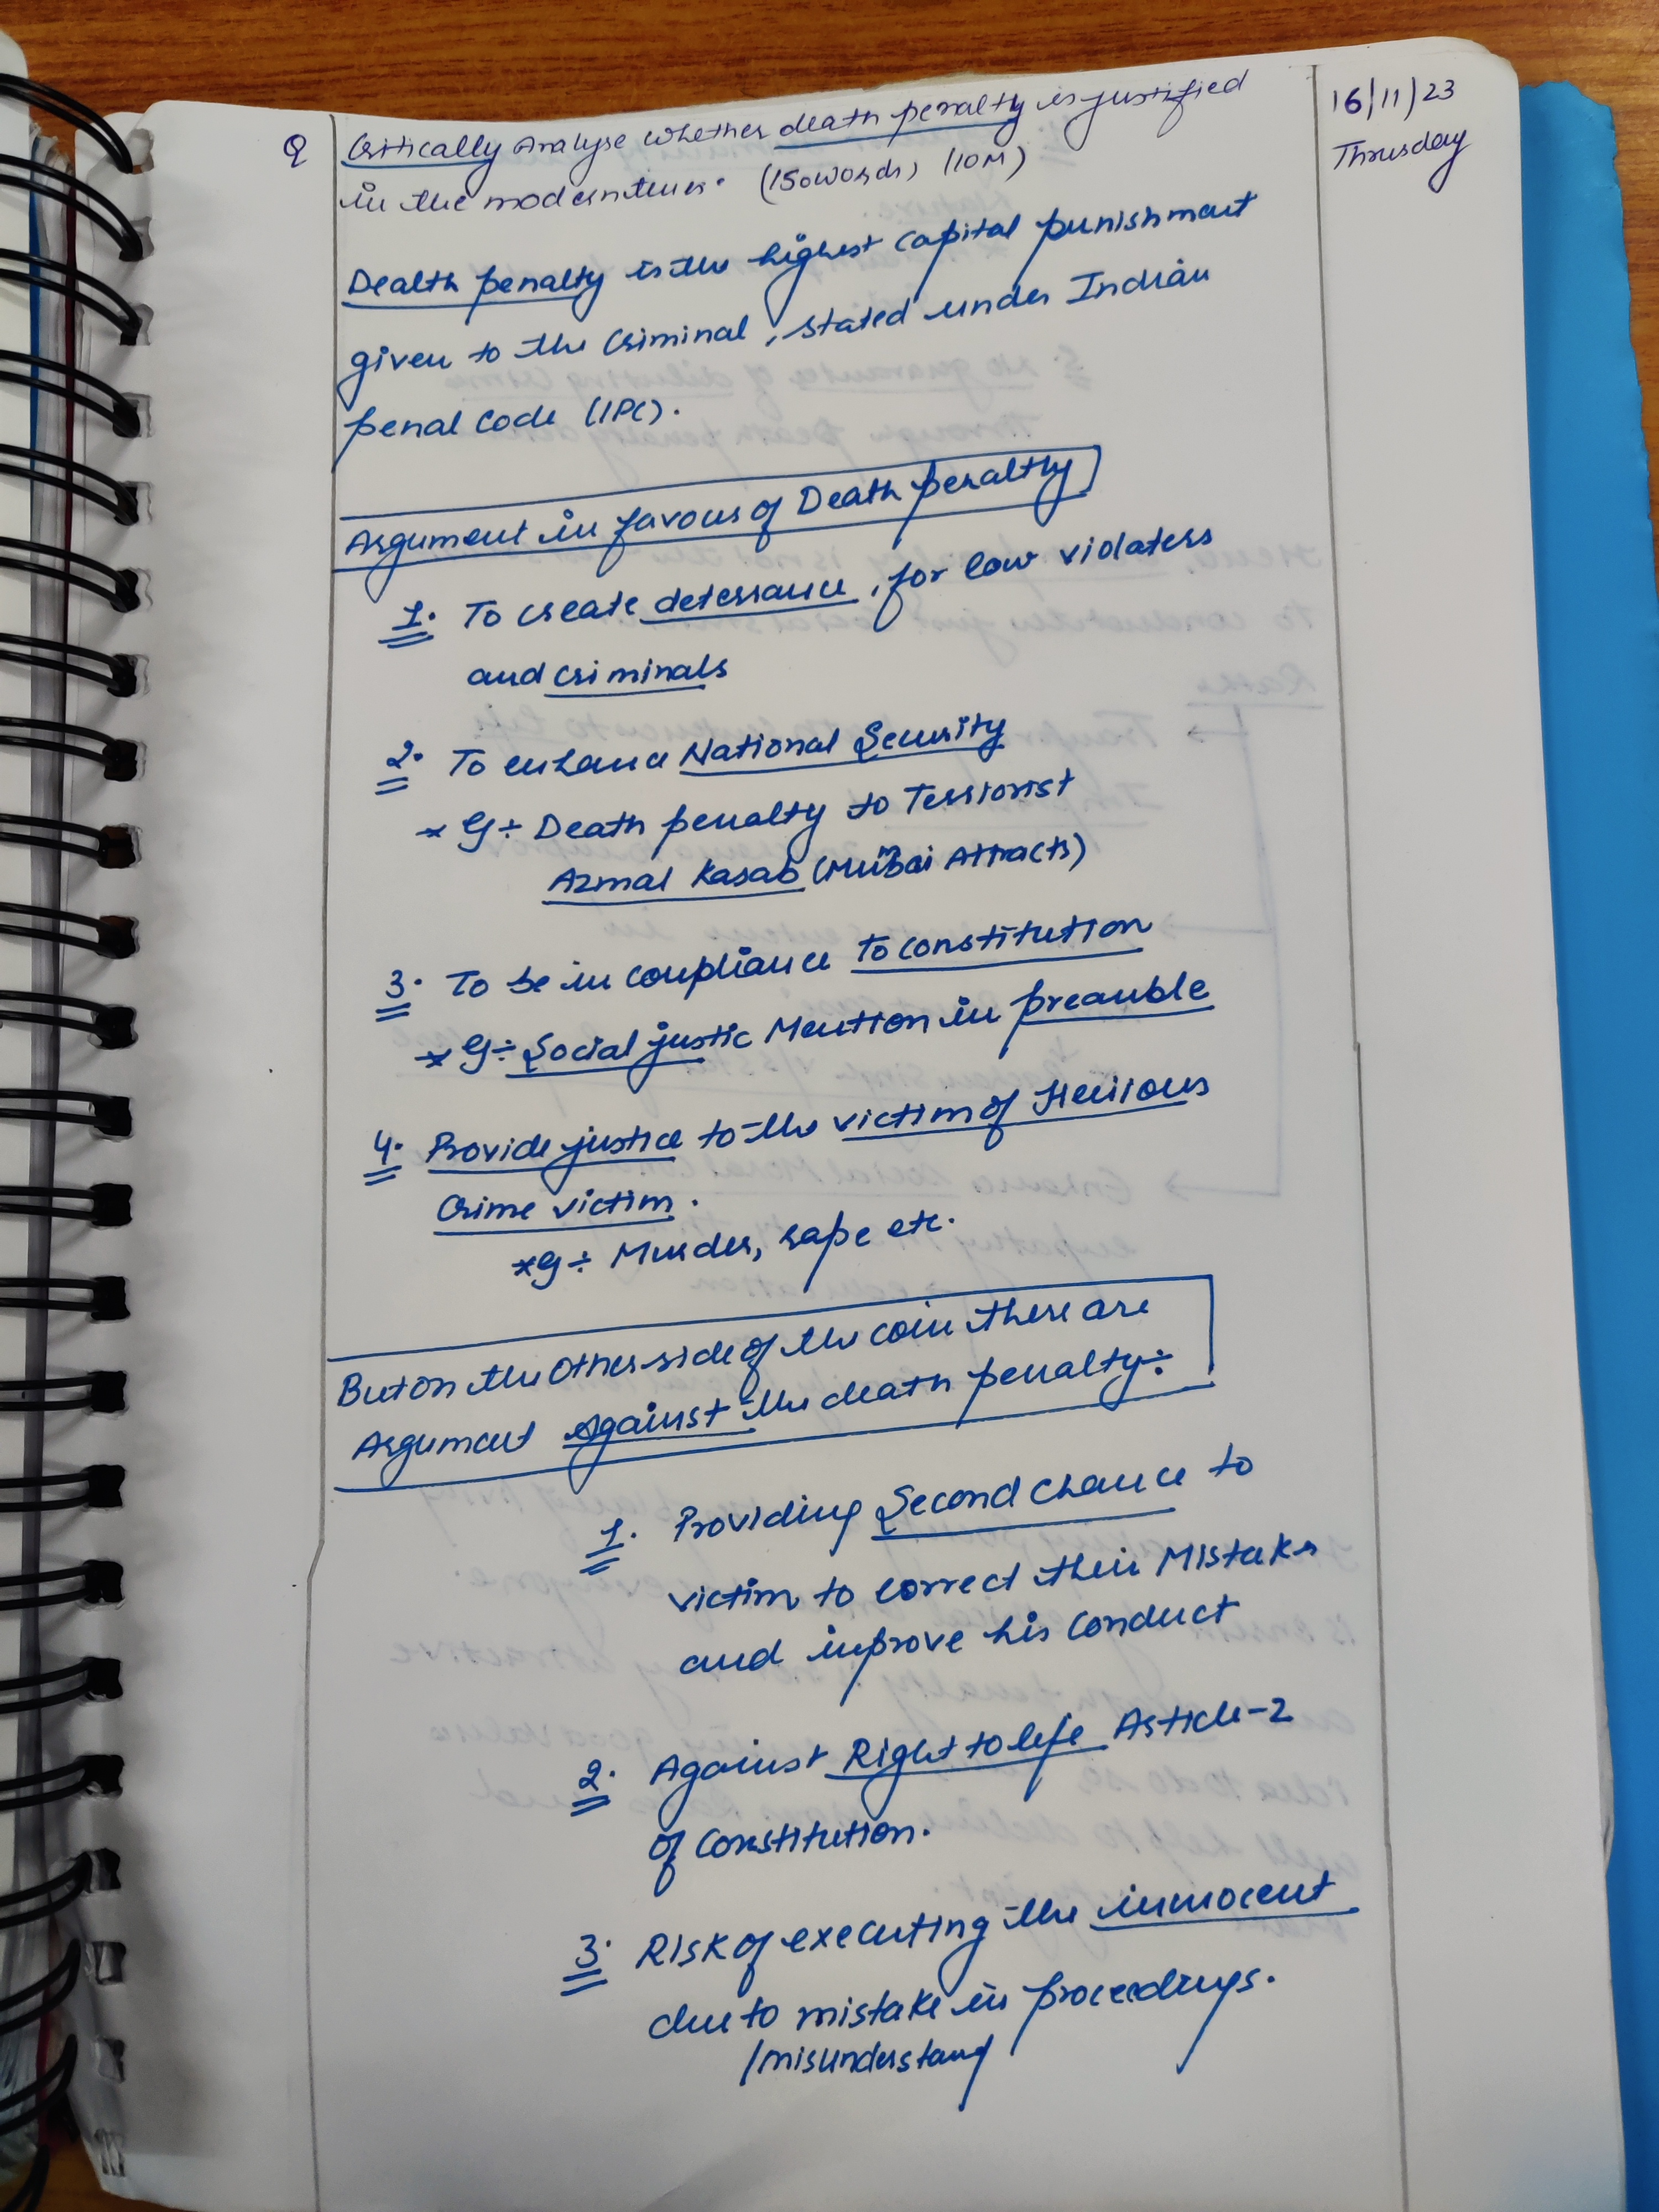 16/11/23
Thrusday
Q Critically Analyse whether death penalty is justified
in the modern times. (150 words) (10M)
Dealth penalty is the highest capital punishment
given to the Criminal, stated under Indian
penal Code (IPC).
Argument in favour of Death penaltly
1. To create deterrance, for low violaters
and criminals
2. To enhance National Security
eg ÷ Death penalty to Terriorist
Azmal Kasab (Mumbai Attracts)
3. To be in compliance to constitution
eg ÷ Social justic Mention in preamble
4. Provide justice to the victim of Heirious
Crime victim.
eg ÷ Murder, rape etc.
But on the other side of the coin there are
Argument Against the death penalty ÷
1. Providing Second chance to
victim to correct their Mistakes
and improve his Conduct
2. Against Right to life Article-2
of Constitution.
3. Risk of executing the innocent
due to mistake in proceedings.
/misunderstang